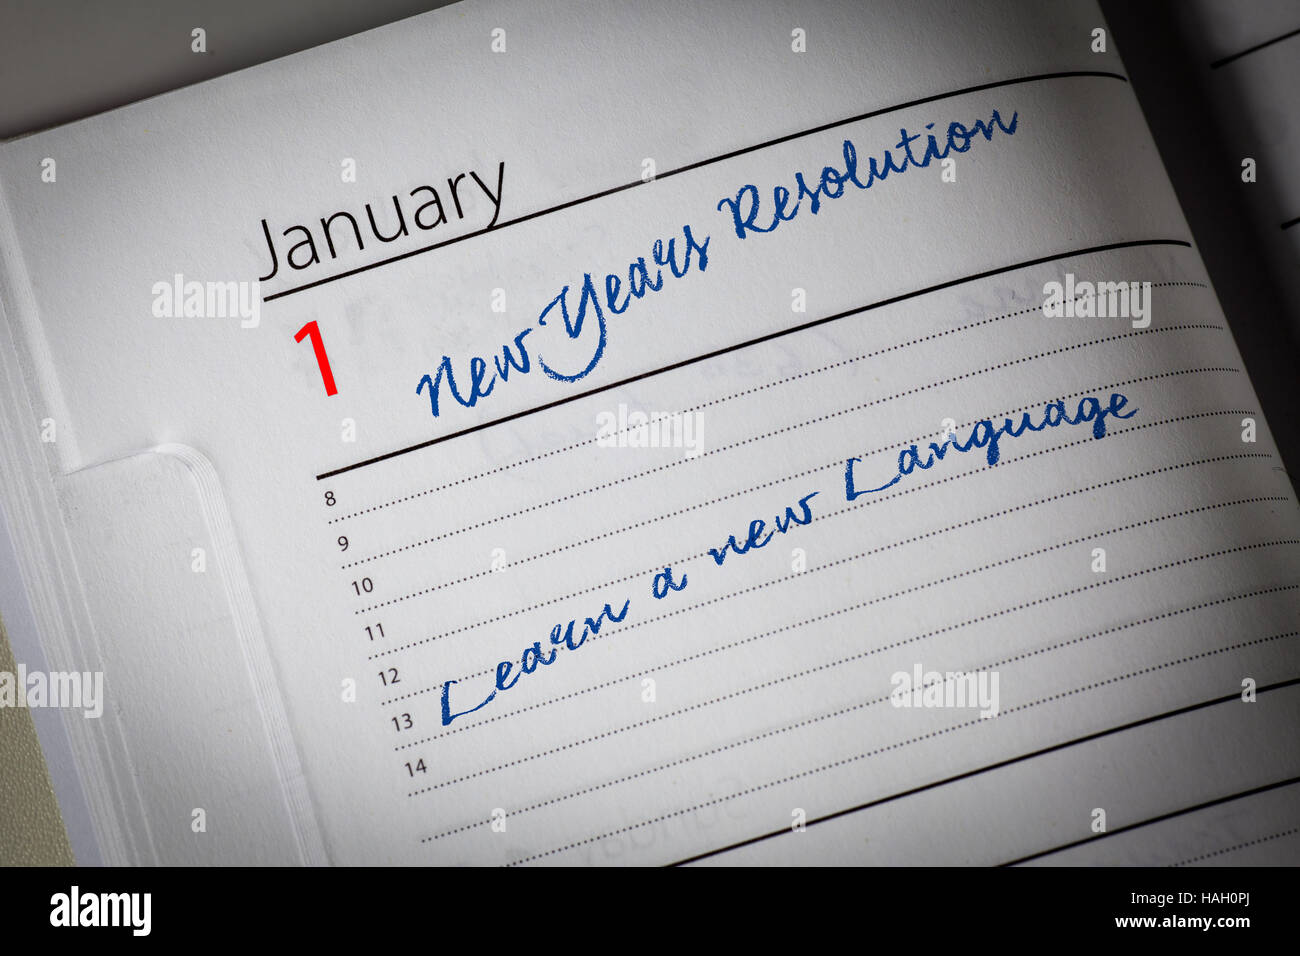 January
1
New Years Resolution
8
9
10
11
12
13
14
Learn a new Language
alamy
alamy
alamy
alamy
alamy
Image ID: HAH0PJ
www.alamy.com